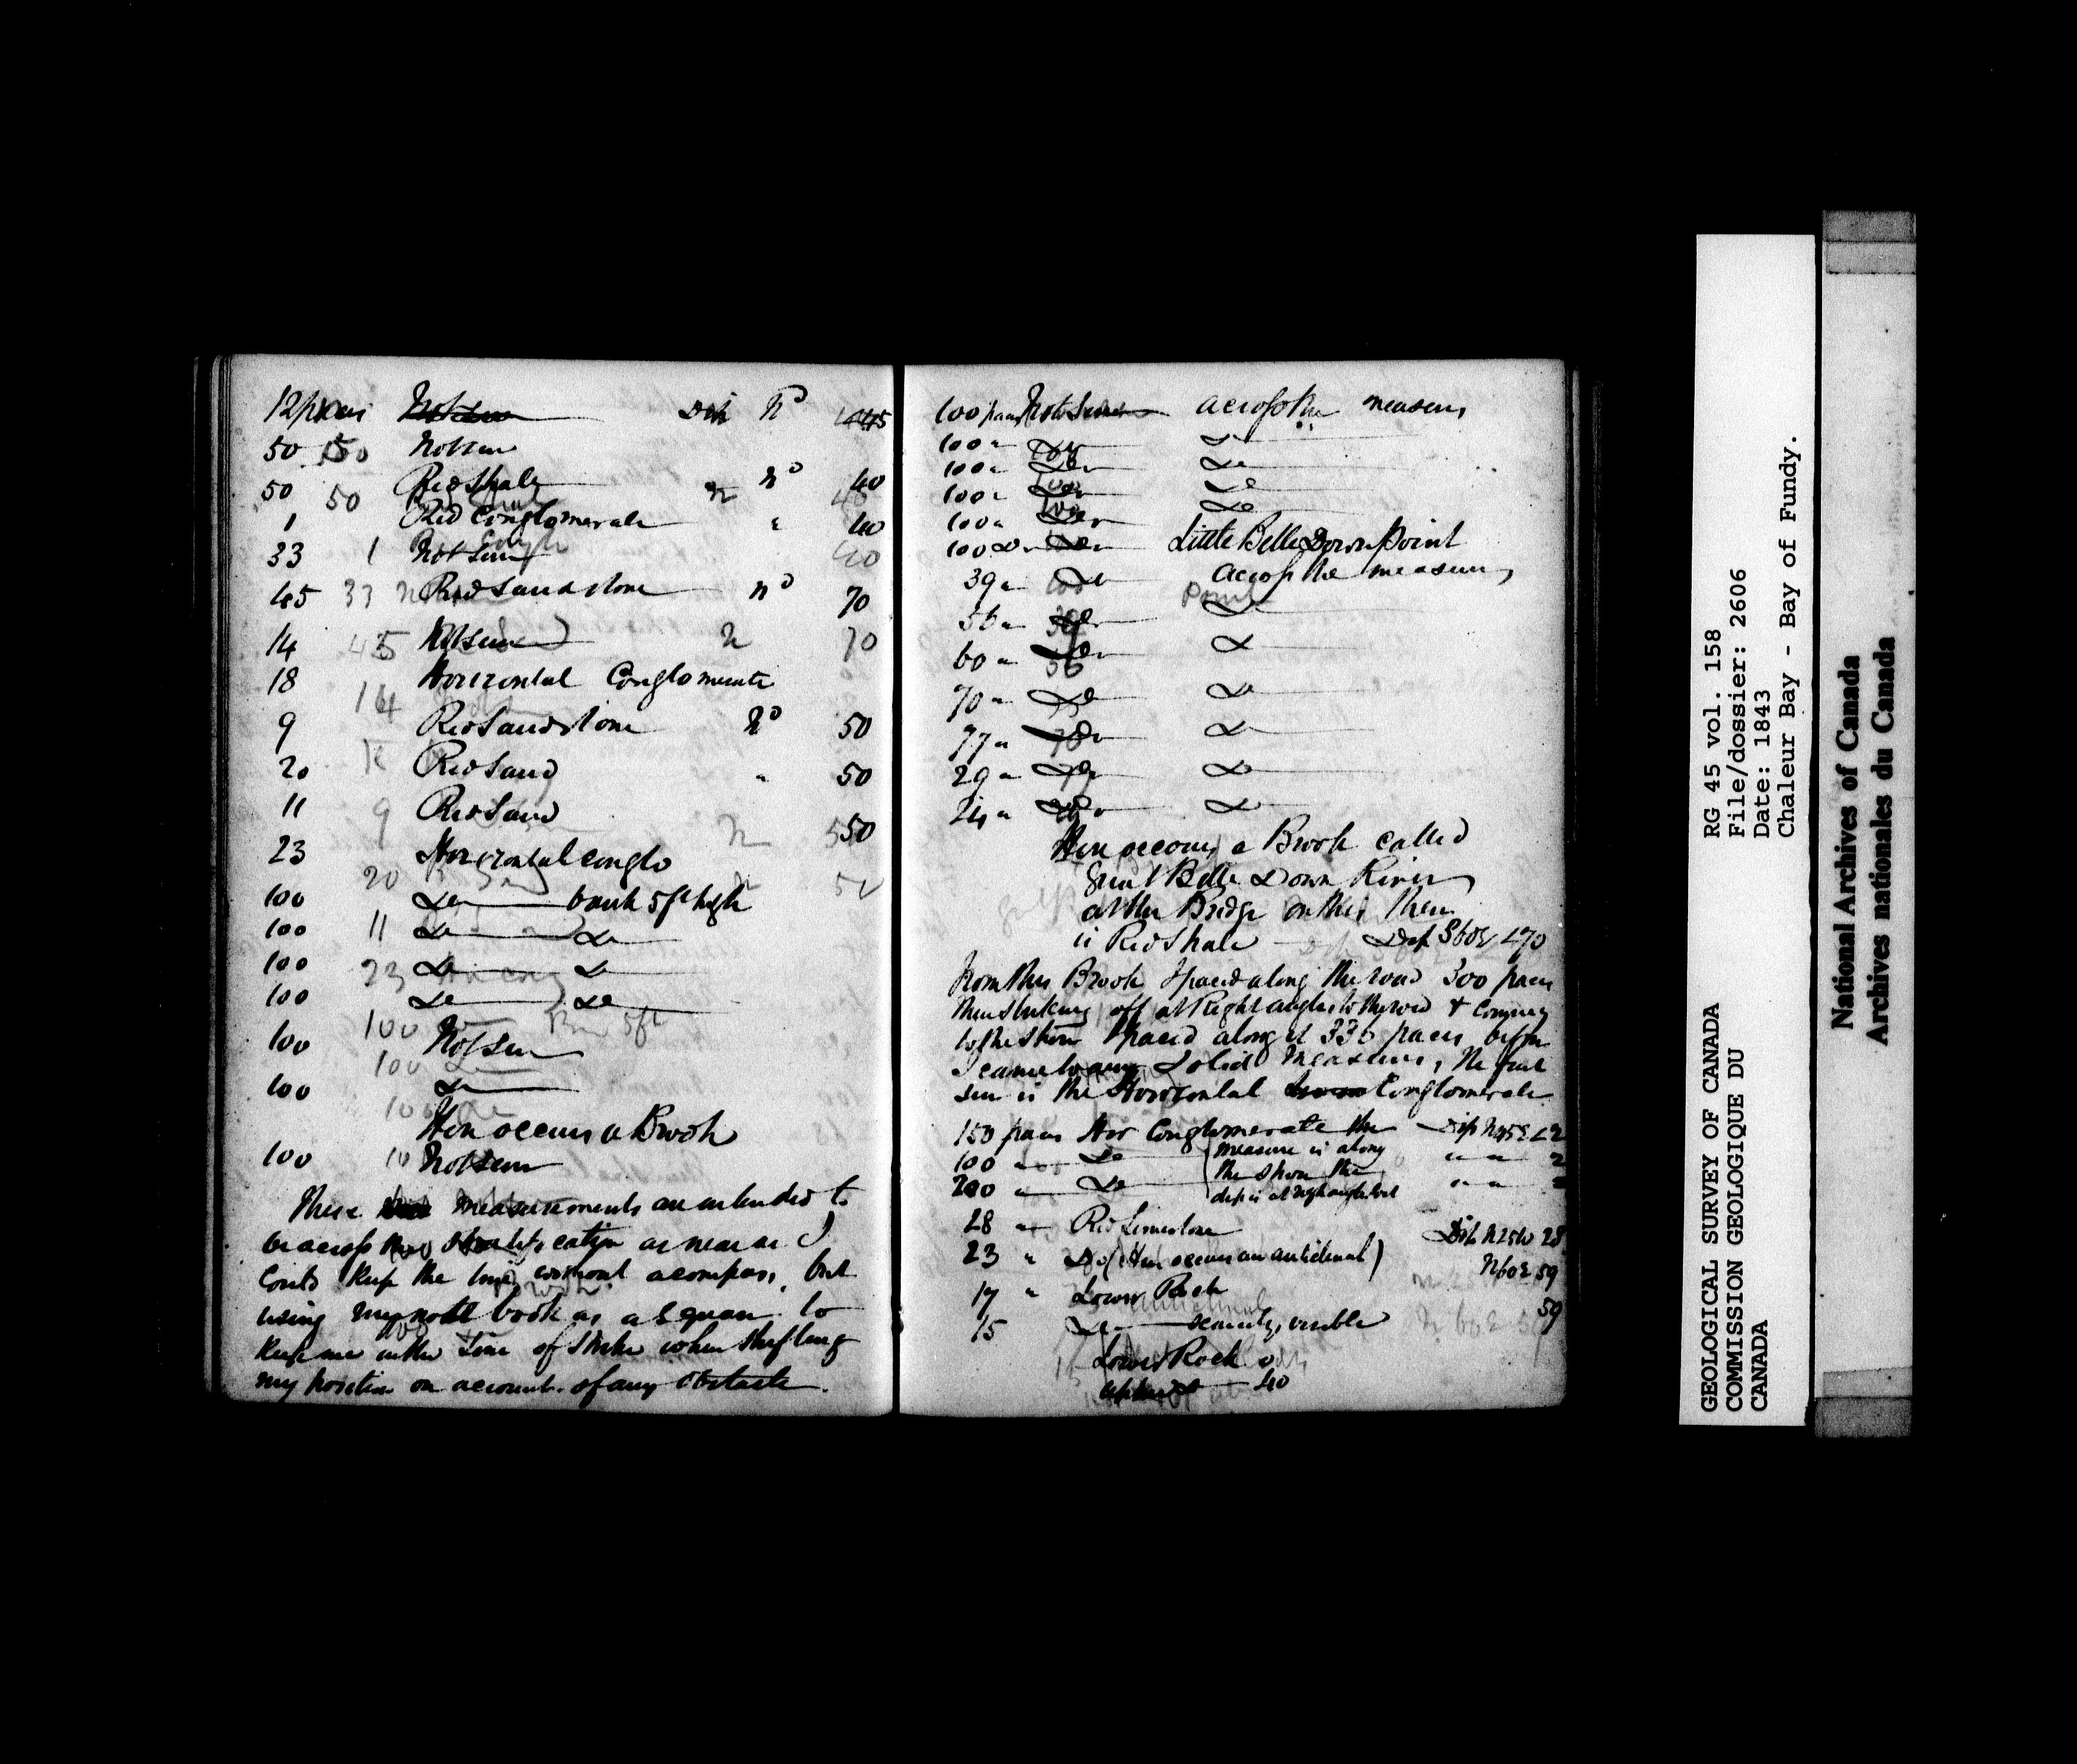 12 paces Not seen Dip N° 45
50 Not seen
50 Red Shale N° 40
1 Red Conglomerate " 40
33 Not seen
45 Red Sandstone N° 70
14 Not seen
18 Horizontal Conglomerate
9 Red Sandstone N° 50
20 Red Sand " 50
11 Red Sand 50
23 Horizontal conglo
100 Do bank 5 ft high
100 Do Do
100 Do Do
100 Do Do
100 Not seen
100 Do
Here occurs a Brook
100 Not seen
These measurements are intended to
be across the stratification as near as I
could keep the line without a compass, but
using my note book as a square to
keep me in the line of strike when shifting
my position on account of any obstacle.
100 paces Not Seen across the measures
100 " Do Do
100 " Do Do
100 " Do Do
100 " Do Do
100 Do Do Little Belle Down Point
39 " Do across the measures
56 " Do Do
60 " Do Do
70 " Do Do
77 " Do Do
29 " Do Do
24 " Do Do
Here occurs a Brook called
Great Belle Down River
at the Bridge on this there
is Red Shale Dip S60E ∠70
From this Brook I paced along the road 300 paces
then striking off at Right angles to the road & coming
to the shore I paced along it 336 paces before
I came to any Solid measures, the first
seen is the Horizontal Conglomerate
150 paces Hor Conglomerate the Dip N45E ∠2
100 " Do measure is along " " 2
200 " Do the shore the " " 2
dip is at right angles to it
28 " Red Limestone Dip N25W 28
23 " Do (Here occurs an anticlinal) N60E 59
17 " Lower Rock
15 Do scarcely visible 59
Lower Rock
40
GEOLOGICAL SURVEY OF CANADA
COMMISSION GEOLOGIQUE DU
CANADA
RG 45 vol. 158
File/dossier: 2606
Date: 1843
Chaleur Bay - Bay of Fundy.
National Archives of Canada
Archives nationales du Canada